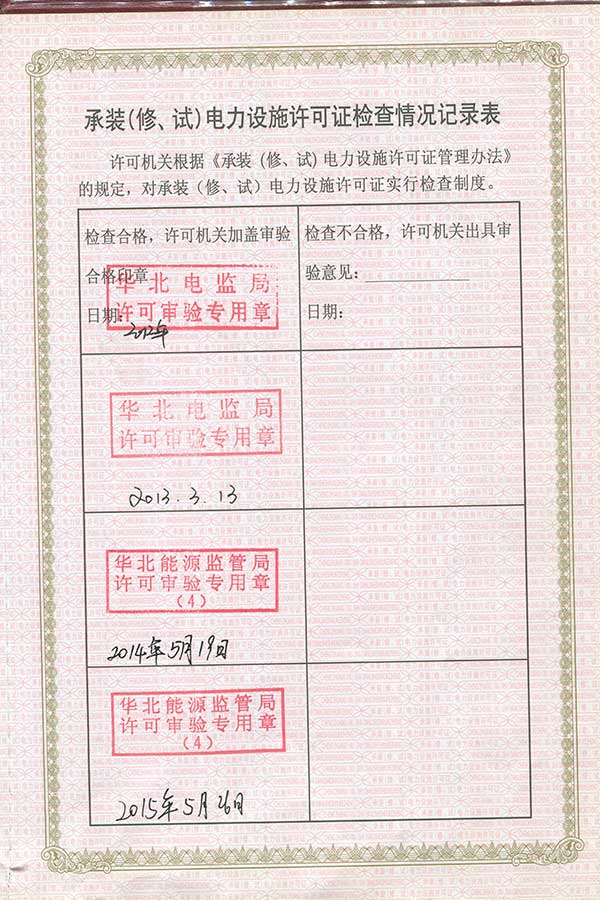 承装(修、试)电力设施许可证检查情况记录表
许可机关根据《承装(修、试)电力设施许可证管理办法》
的规定,对承装(修、试)电力设施许可证实行检查制度。
检查合格,许可机关加盖审验
合格印章
日期:
华北电监局
许可审验专用章
2012年
检查不合格,许可机关出具审
验意见:
日期:
华北电监局
许可审验专用章
2013.3.13
华北能源监管局
许可审验专用章
(4)
2014年5月19日
华北能源监管局
许可审验专用章
(4)
2015年5月26日